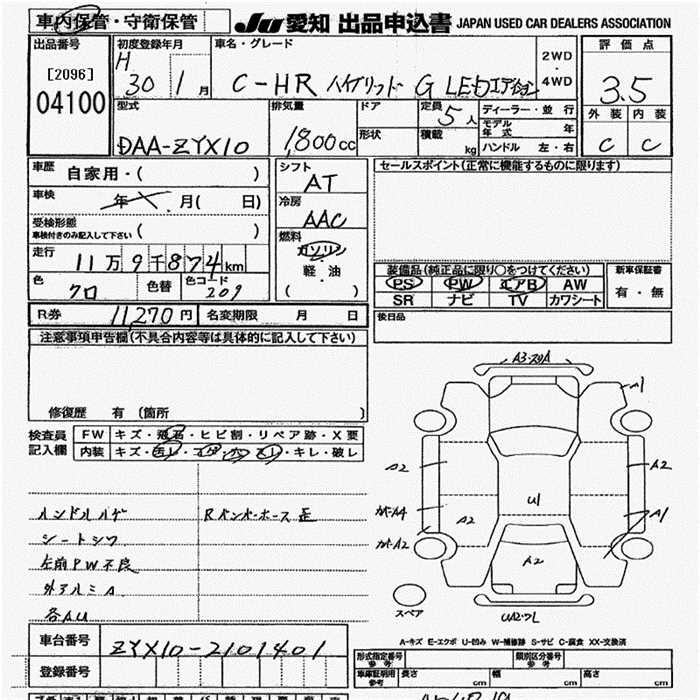 車内保管・守衛保管 JU 愛知 出品申込書 JAPAN USED CAR DEALERS ASSOCIATION
出品番号 初度登録年月 車名・グレード 2WD ・ 4WD 評価点
[2096] H 30 1月 C-HR ハイブリッド G LEDエディション 3.5
04100
型式 排気量 ドア 定員 5人 ディーラー・並行 外装 内装
モデル年式 年
DAA-ZYX10 1,800cc 形状 積載 kg ハンドル 左・右 C C
車歴 自家用・( ) シフト AT セールスポイント(正常に機能するものに限ります)
車検 年 月( 日) 冷房 AAC
受検形態 ・( )
車検付きのみ記入して下さい
燃料 ガソリン
走行 11万9千874km 軽・油 装備品(純正品に限り○をつけてください) 新車保証書
( ) PS PW エアB AW 有・無
色 クロ 色替 色コード 209 SR ナビ TV カワシート
R券 11,270円 名変期限 月 日 後日品
注意事項申告欄(不具合内容等は具体的に記入して下さい)
修復歴 有 (箇所 )
検査員 FW キズ・飛石・ヒビ割・リペア跡・X要
記入欄 内装 キズ・汚レ・コゲ・穴・スレ・キレ・破レ
ハンドルハゲ Rバンパーホース歪
シートシワ
左前PW不良
外アルミA
各AU
A1
A2
A2
U1
カバーA4
A2
A1
カバーA2
A2
スペア
A-キズ E-エクボ U-凹み W-補修跡 S-サビ C-腐食 XX-交換済
車台番号 ZYX10-2101401
形式指定番号 参考 類別区分番号 参考
登録番号
車庫証明用 参考 長さ cm 幅 cm 高さ cm